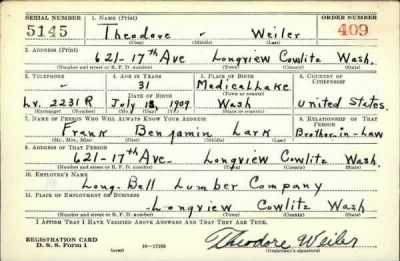 SERIAL NUMBER 1. NAME (Print) ORDER NUMBER
5145 Theodore - Weiler 409
(First) (Middle) (Last)
2. ADDRESS (Print)
621-17th Ave Longview Cowlitz Wash.
(Number and street or R. F. D. number) (Town) (County) (State)
3. TELEPHONE 4. AGE IN YEARS 5. PLACE OF BIRTH 6. COUNTRY OF CITIZENSHIP
31 Medical Lake
DATE OF BIRTH (Town or county)
Lv. 2231R July 18, 1909 Wash United States.
(Exchange) (Number) (Mo.) (Day) (Yr.) (State or country)
7. NAME OF PERSON WHO WILL ALWAYS KNOW YOUR ADDRESS 8. RELATIONSHIP OF THAT PERSON
Frank Benjamin Lark Brother-in-Law
(Mr., Mrs., Miss) (First) (Middle) (Last)
9. ADDRESS OF THAT PERSON
621-17th Ave. Longview Cowlitz Wash.
(Number and street or R. F. D. number) (Town) (County) (State)
10. EMPLOYER'S NAME
Long-Bell Lumber Company
11. PLACE OF EMPLOYMENT OR BUSINESS
Longview Cowlitz Wash
(Number and street or R. F. D. number) (Town) (County) (State)
I AFFIRM THAT I HAVE VERIFIED ABOVE ANSWERS AND THAT THEY ARE TRUE.
REGISTRATION CARD
D. S. S. Form 1 (over) 16-17105 Theodore Weiler
(Registrant's signature)